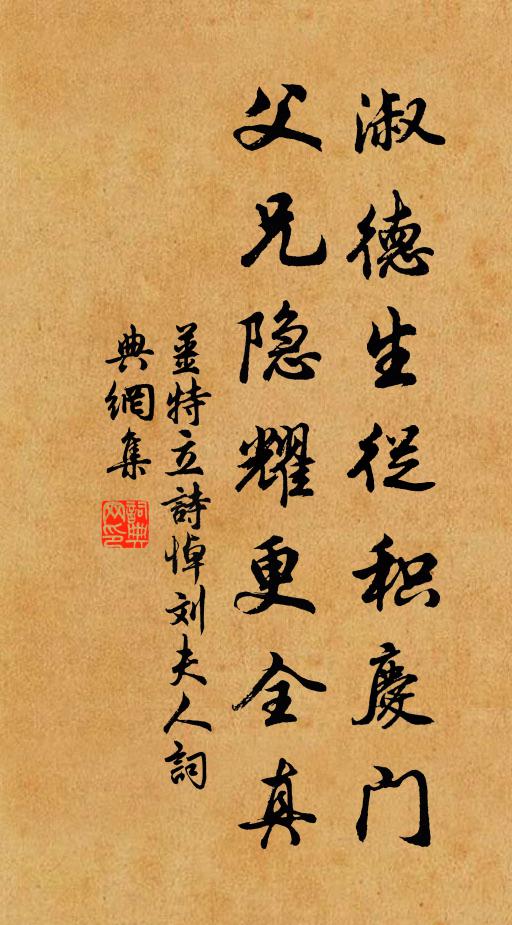 淑德生從积慶门
父兄隐耀更全真
姜特立詩悼刘夫人詞
典網集
詞典网印